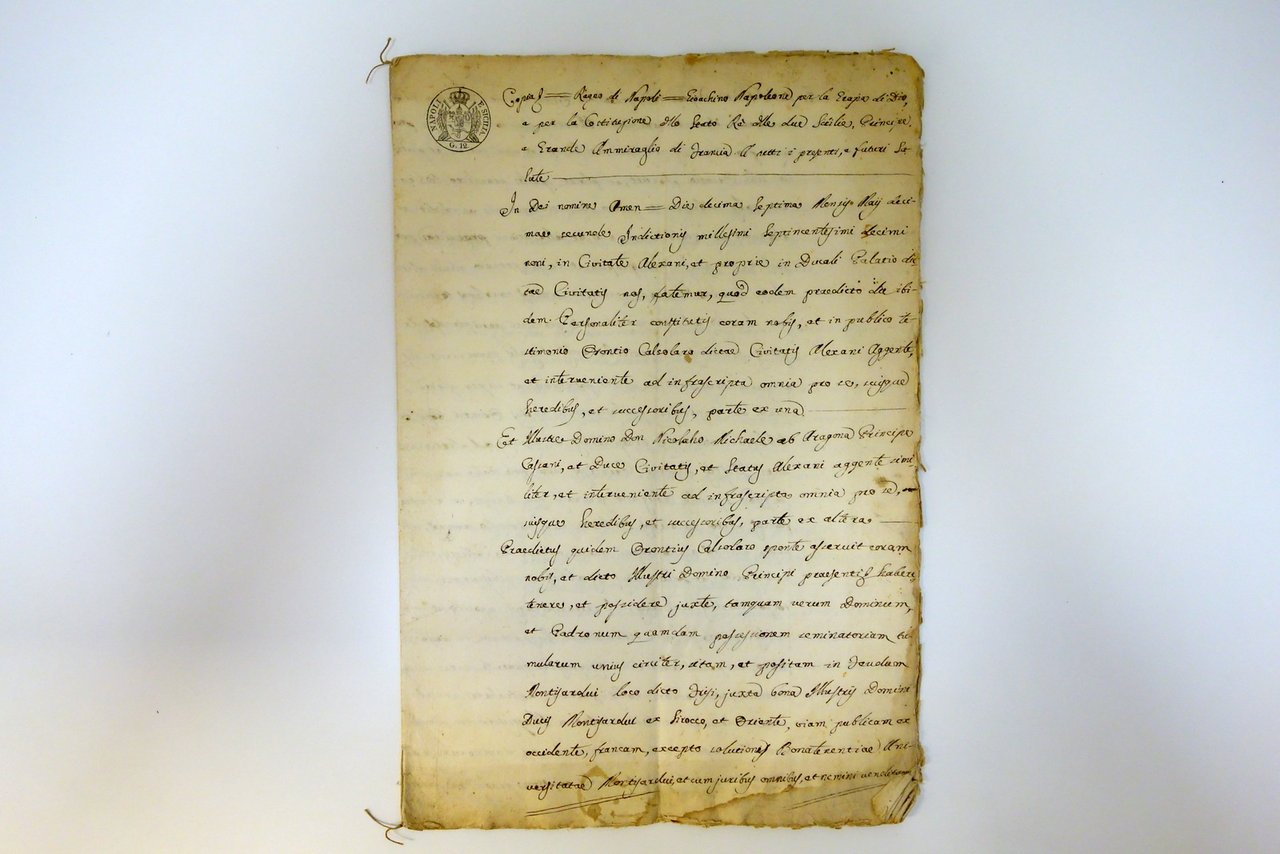 NAPOLI E SICILIA
G. 12.
Copia = Regno di Napoli = Gioachino Napoleone per la Grazia di Dio,
e per la Costituzione dello Stato Rè delle due Sicilie, Principe,
e Grande Ammiraglio di Francia A tutti i presenti, e futuri Sa-
lute
In Dei nomine Amen = Die decima septima Mensis Maij deci-
mae secundae Indictionis millesimi septincentesimi decimi
noni, in Civitate Alexani, et proprie in Ducali Palatio dic-
tae Civitatis nos, fatemur, quod eodem praedicto die ibi-
dem Personaliter constitutis coram nobis, et in publico te-
stimonio Orontio Calsolaro dictae Civitatis Alexani Aggente,
et interveniente ad infrascripta omnia pro se, suisque
heredibus, et successoribus, parte ex una
Et Illustre Domino Don Nicolaho Michaele ab Aragona Principe
Casani, et Duce Civitatis, et Status Alexani aggente simi-
liter, et interveniente ad infrascripta omnia pro se,
suisque heredibus, et successoribus, parte ex altera
Praedictus quidem Orontius Calsolaro sponte asseruit coram
nobis, et dicto Illustri Domino Principi praesenti habere
tenere, et possidere juxte, tamquam verum Dominum,
et Padronum quamdam possessionem seminatoriam tu-
mularum unius circiter, sitam, et positam in feudum
Montisardui loco dicto Frisi, juxta bona Illustris Domini
Ducis Montisardui ex Sirocco, et Oriente, viam publicam ex
occidente, francam, excepto solutione Bonatenentiae Uni-
versitatae Montisardui, et cum juribus omnibus, et nemini venditam